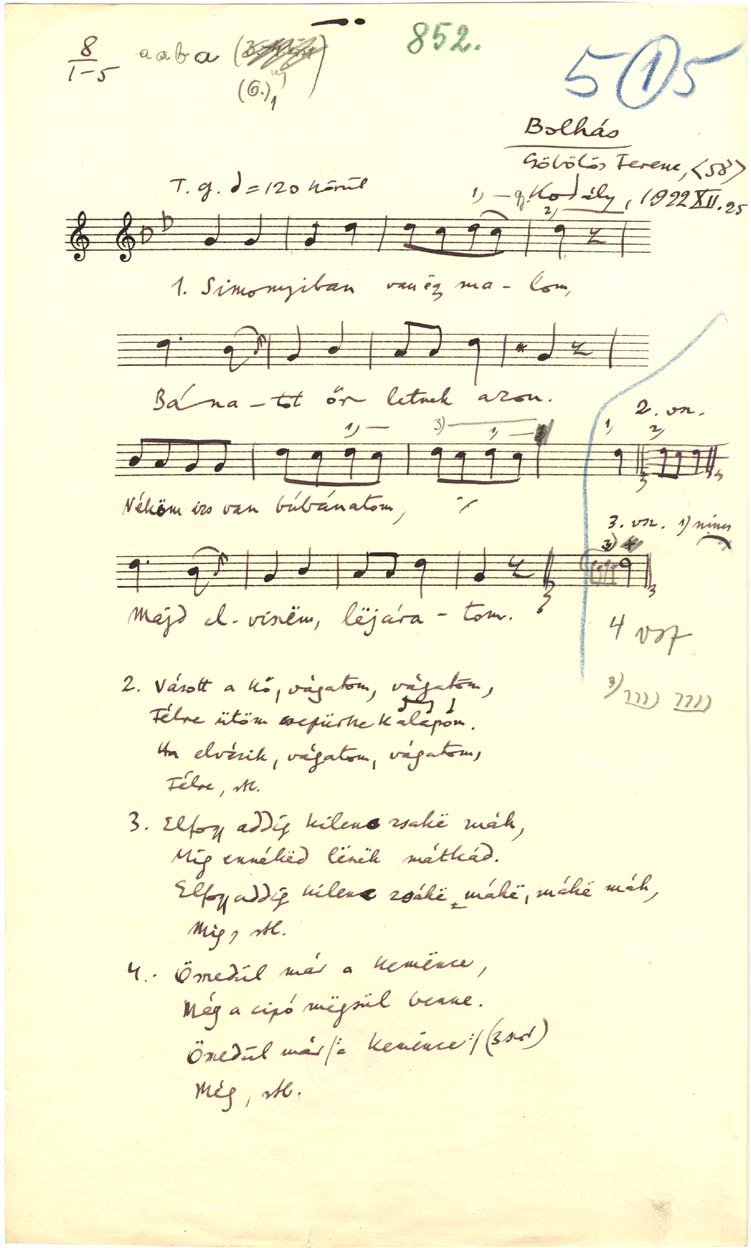 8
1-5
a a b a
(6.)
852.
5 1 5
Bolhás
Ferenc, (58)
Kodály, 1922 XII. 25
T. g. = 120 körül
1. Simonyiban van ëgy ma - lom,
Bána - tot őr letnek azon.
1) 3) 1) 1) 2. vsz. 2)
Néköm is van búbánatom,
3. vsz. 1) nincs
3)
Majd el - viszëm, lëjára - tom.
4 vsz
3)
2. Vásott a kő, vágatom, vágatom,
Félre ütöm csepürke kalapom.
Ha elvásik, vágatom, vágatom,
Félre, stb.
3. Elfogy addig kilenc zsákë mák,
Míg ennékëd lëszëk mátkád.
Elfogy addig kilenc zsákë mákë, mákë mák,
Míg, stb.
4. Összedül már a keménce,
Még a cipó mëgsül benne.
Összedül már /: a keménce :/ (3szor)
Még, stb.